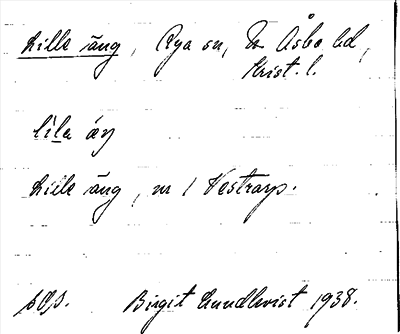 Lille äng, Rya sn, N. Åsbo hd,
Krist. l.
lìla äŋ
Lille äng, nr 1 Vestrarp.
Birgit Lundkvist 1938.